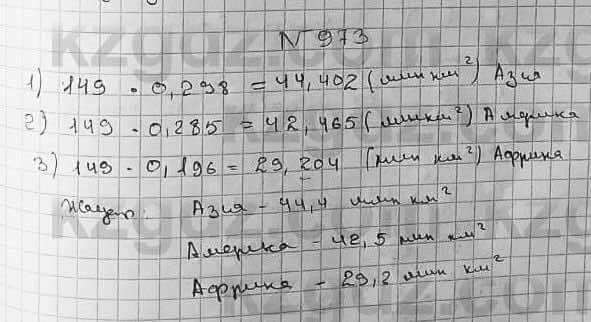 N 973
1) 149 · 0,298 = 44,402 (млн км²) Азия
2) 149 · 0,285 = 42,465 (млн км²) Америка
3) 149 · 0,196 = 29,204 (млн км²) Африка
Жауап: Азия - 44,4 млн км²
Америка - 42,5 млн км²
Африка - 29,2 млн км²